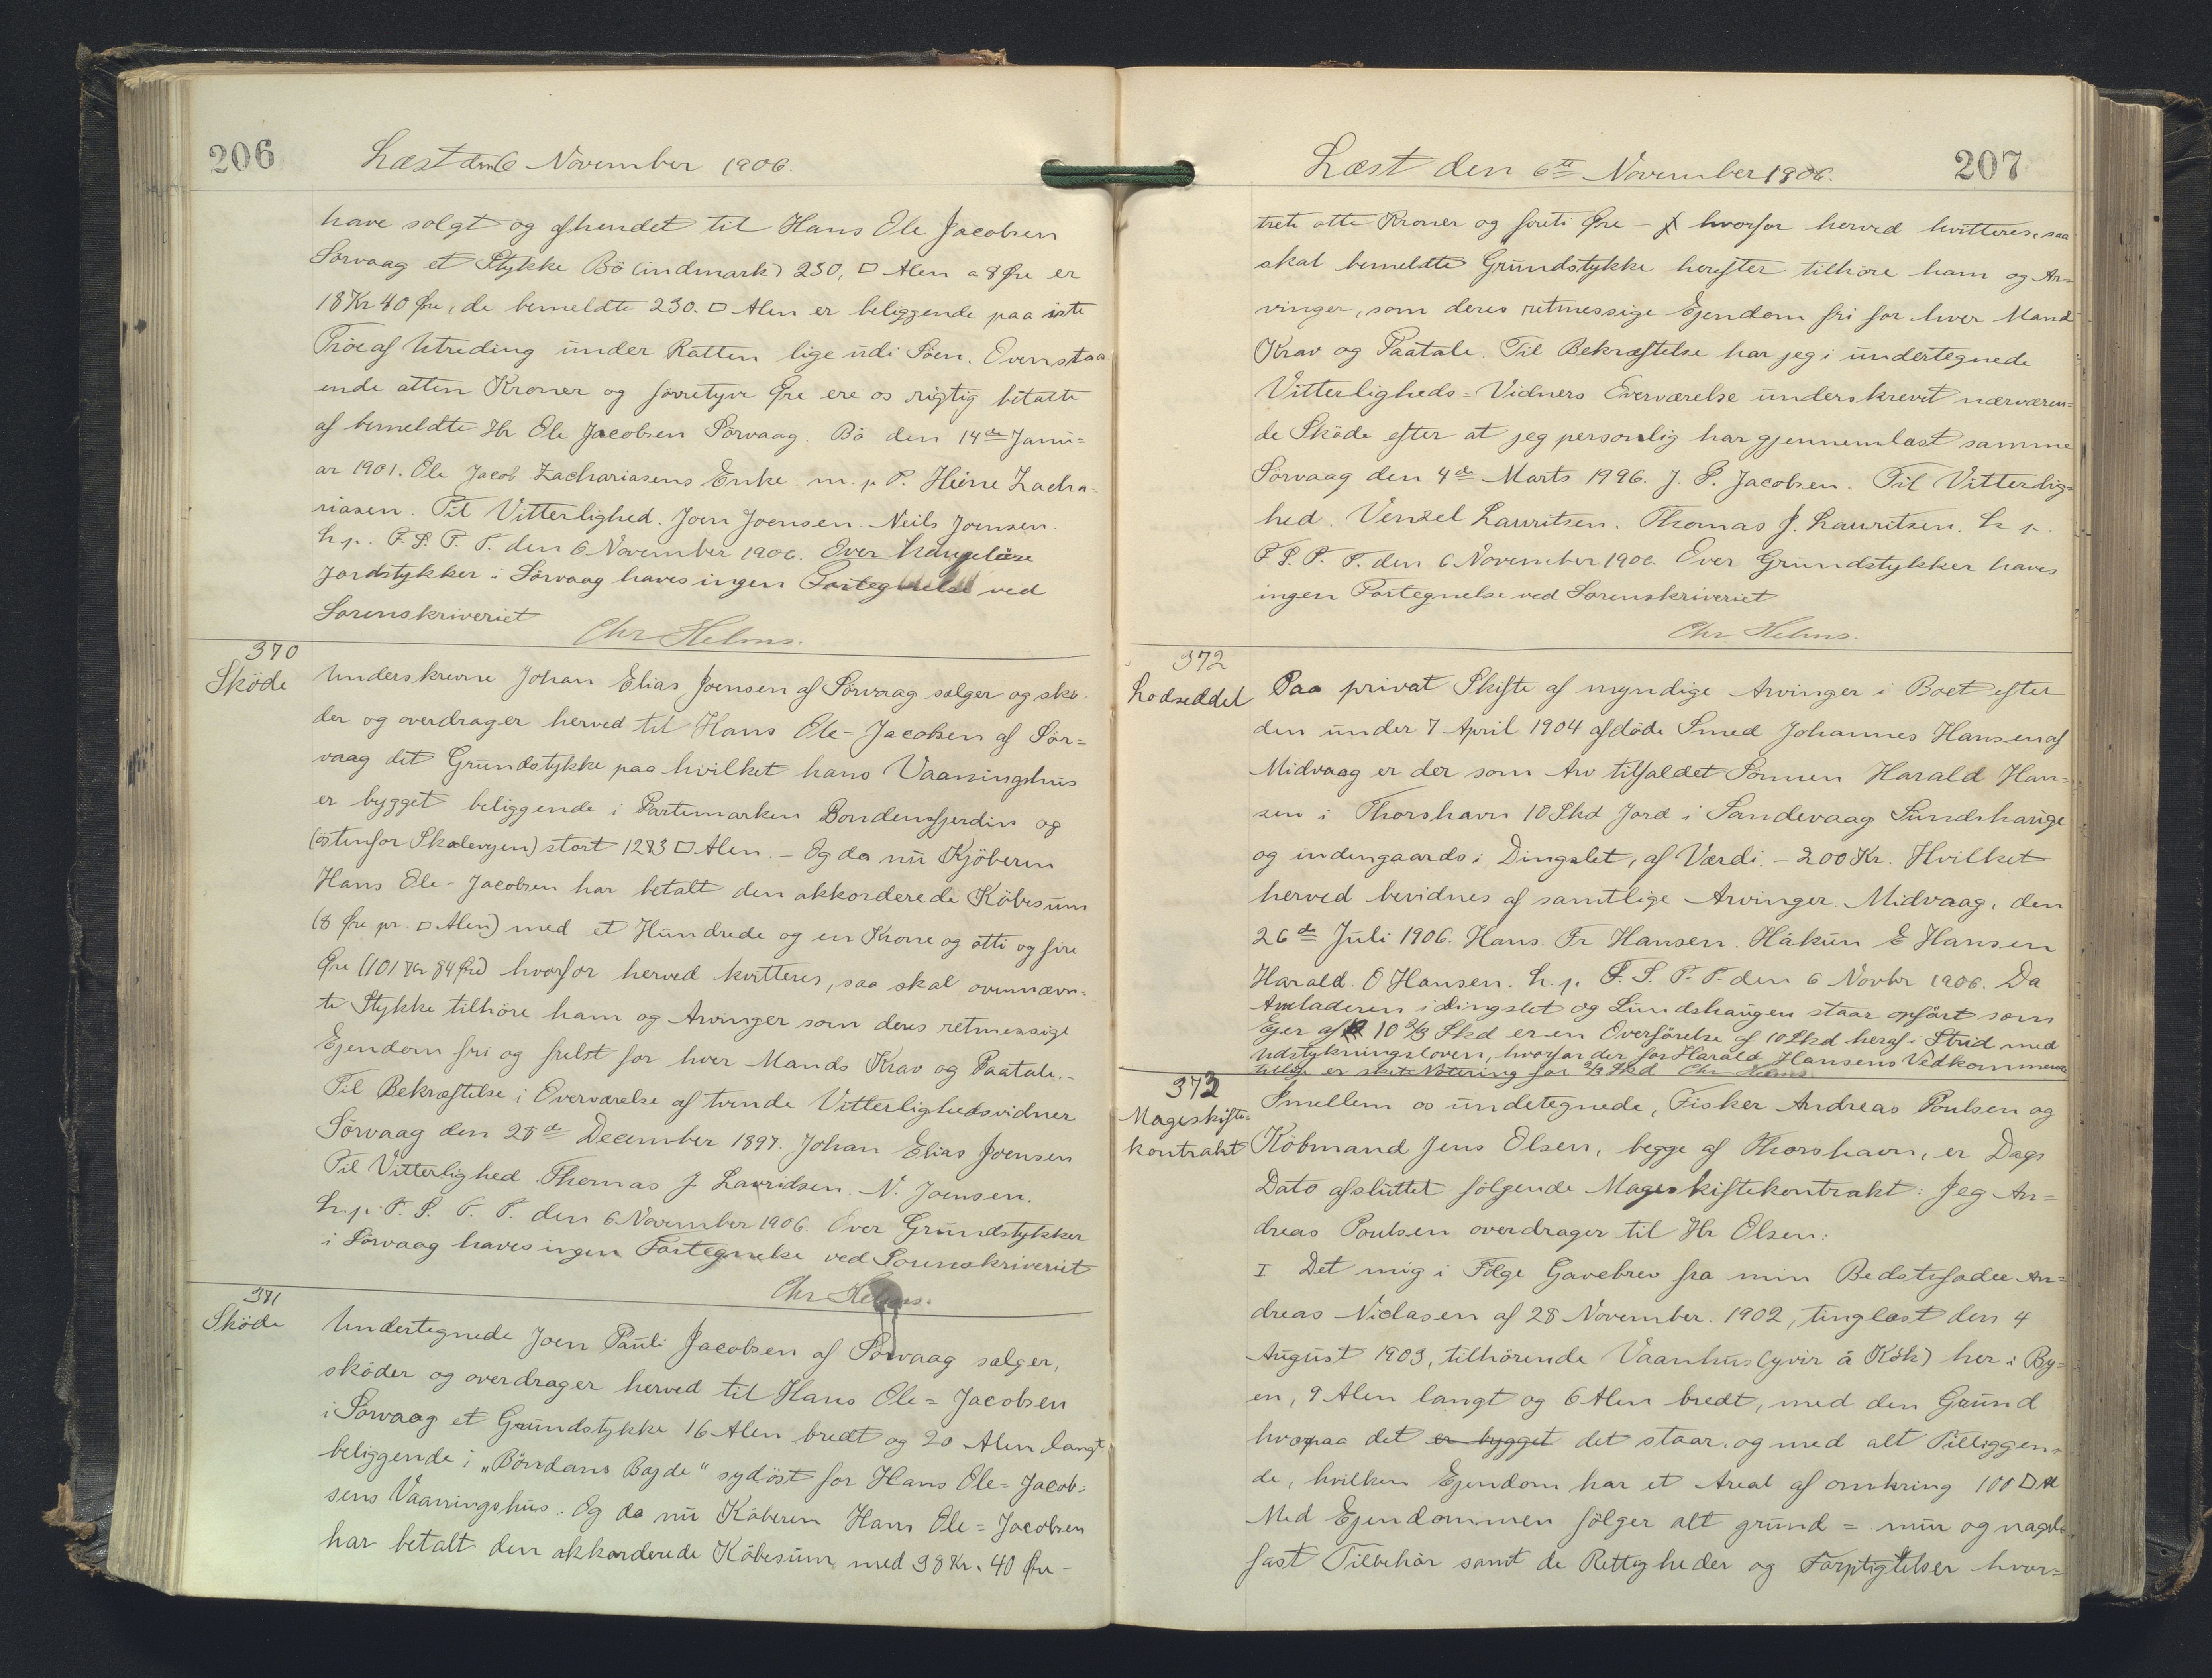 206
Læst den 6 November 1906.
have solgt og afhendet til Hans Ole Jacobsen
Sörvaag et Stykke Bö (indmark) 230, □ Alen a 8 Øre er
18 Kr 40 Øre, de bemeldte 230. □ Alen er beliggende paa iste
Tröe af Utreding under Ratten lige udi Söen. Ovenstaa
ende atten Kroner og förretyve Øre ere os rigtig betalte
af bemeldte Hr Ole Jacobsen Sörvaag. Bö den 14de Janu=
ar 1901. Ole Jacob Zachariasens Enke m. p. P. Heine Zacha-
riasen. Til Vitterlighed. Joen Joensen. Neils Joensen.
L. p. F. S. T. P. den 6 November 1906. Over haugeløse
Jordstykker i Sörvaag haves ingen Fortegnelse ved
Sorenskriveriet
Chr Helms.
370
Sköde
Underskrevne Johan Elias Joensen af Sörvaag sælger og skö-
der og overdrager herved til Hans Ole-Jacobsen af Sör=
vaag det Grundstykke paa hvilket hans Vaaningshus
er bygget beliggende i Partemarken Bondensfjerdin og
(östenfor Skalevejen) stort 1273 □ Alen. – Og da nu Kjöberen
Hans Ole-Jacobsen har betalt den akkorderede Köbesum
(8 Øre pr. □ Alen) med et Hundrede og en Krone og otti og fire
Øre (101 Kr 84 Øre) hvorfor herved kvitteres, saa skal ovennævn-
te Stykke tilhöre ham og Arvinger som deres retmessige
Ejendom fri og frelst for hver Mands Krav og Paatale.-
Til Bekræftelse i Overværelse af tvende Vitterlighedsvidner
Sörvaag den 28de December 1897. Johan Elias Joensen
Til Vitterlighed Thomas J Lauridsen. N. Joensen.
L. p. F. S. T. P. den 6 November 1906. Over Grundstykker
i Sörvaag haves ingen Fortegnelse ved Sorenskriveriet
Chr Helms.
371
Sköde
Undertegnede Joen Pauli Jacobsen af Sörvaag sælger,
sköder og overdrager herved til Hans Ole=Jacobsen
i Sörvaag et Grundstykke 16 Alen bredt og 20 Alen langt
beliggende i „Böndans Bøjde“ sydöst for Hans Ole=Jacob=
sens Vaaningshus. Og da nu Köberen Hans Ole=Jacobsen
har betalt den akkorderede Köbesum med 38 Kr. 40 Øre -
207
Læst den 6te November 1906.
treti otte Kroner og fireti Øre – hvorfor herved kvitteres, saa
skal bemeldte Grundstykke herefter tilhöre ham og Ar=
vinger, som deres retmessige Ejendom fri for hver Mand
Krav og Paatale. Til Bekræftelse har jeg i undertegnede
Vitterligheds=Vidners Overværelse underskrevet nærværen=
de Sköde efter at jeg personlig har gjennemlæst samme
Sörvaag den 4de Marts 1996. J. P. Jacobsen. Til Vitterlig=
hed. Venzel Lauritsen. Thomas J. Lauritsen. L. p.
F. S. T. P. den 6 November 1906. Over Grundstykker haves
ingen Fortegnelse ved Sorenskriveriet
Chr Helms.
372
Lodseddel
Paa privat Skifte af myndige Arvinger i Boet efter
den under 7 April 1904 afdöde Smed Johannes Hansen af
Midvaag er der som Arv tilfaldet Sönnen Harald Han=
sen i Thorshavn 10 Skd Jord i Sandevaag Lundshauge
og indengaards i Dingslet, af Værdi – 200 Kr. Hvilket
herved bevidnes af samtlige Arvinger. Midvaag, den
26de Juli 1906. Hans. Fr Hansen. Håkun E Hansen
Harald. O Hansen. L. p. F. S. T. P. den 6 Novbr 1906. Da
Avladeren i dingslet og Lundshaugen staar opfört som
Ejer af 10 2/3 Skd er en Overförelse af 10 Skd heraf i Strid med
Udstykningsloven, hvorfor der for Harald Hansens Vedkommende
tillige er sket Notering for 2/3 Skd Chr Helms.
373
Mageskifte-
kontrakt
Imellem os undetegnede, Fisker Andreas Poulsen og
Köbmand Jens Olsen, begge af Thorshavn, er Dags
Dato afsluttet fölgende Mageskiftekontrakt: Jeg An=
dreas Poulsen overdrager til Hr Olsen:
I Det mig i Fölge Gavebrev fra min Bedstefader An=
dreas Niclasen af 28 November. 1902, tinglæst den 4
August 1903, tilhörende Vaanhus (yvir á Kók) her i By=
en, 9 Alen langt og 6 Alen bredt, med den Grund
hvorpaa det er bygget det staar, og med alt Tilliggen=
de, hvilken Ejendom har et Areal af omkring 100 □ Al
Med Ejendommen fölger alt grund= mur og nagel=
fast Tilbehör samt de Rettigheder og Forpligtelser hvor=